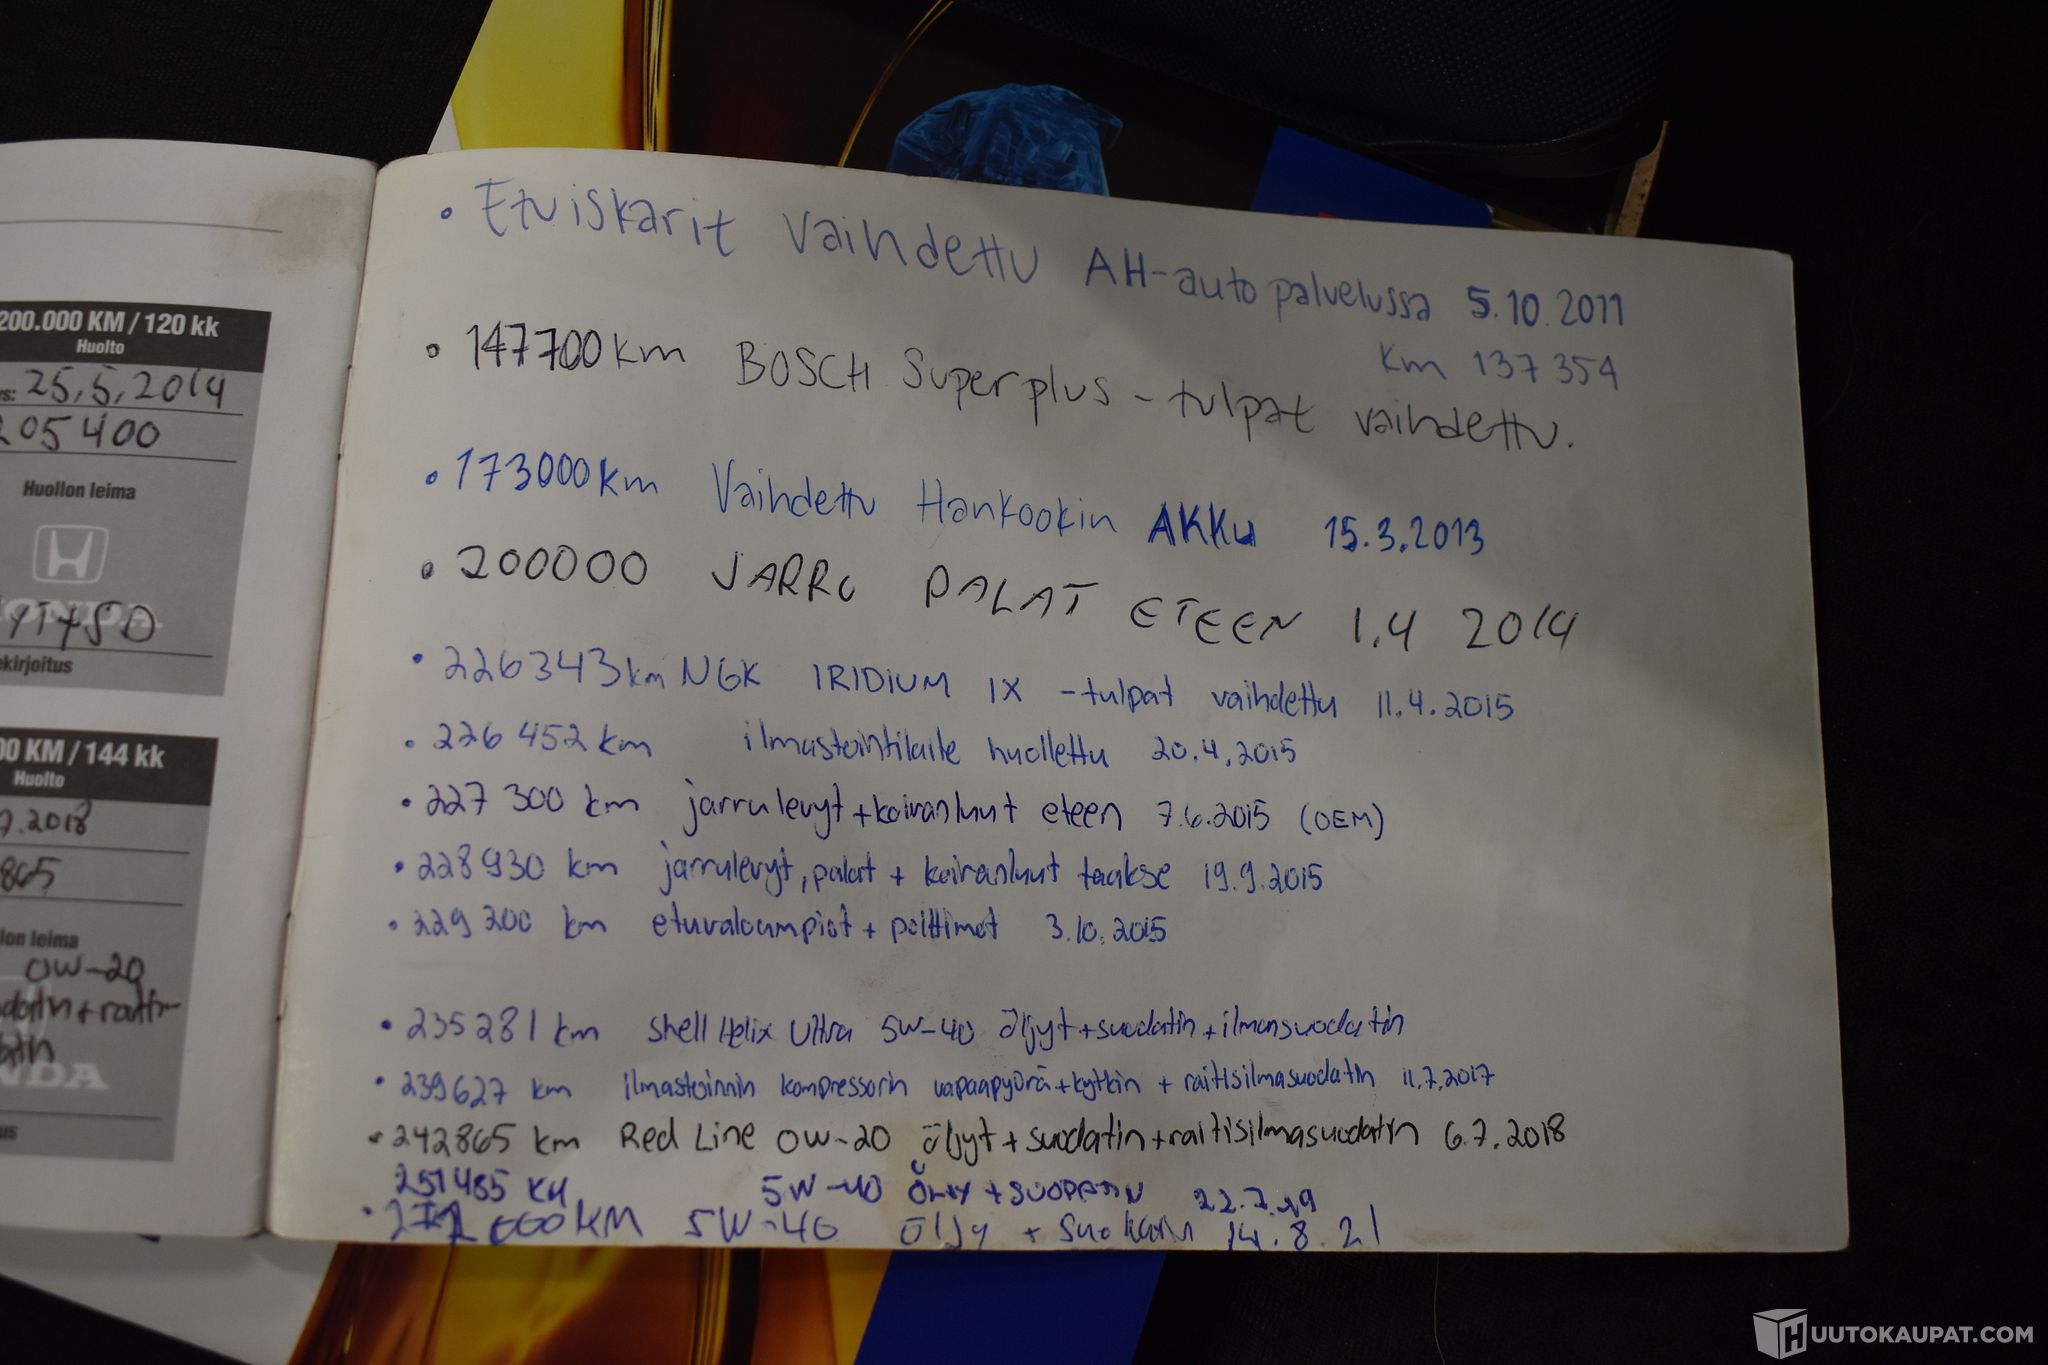 200.000 KM / 120 kk
Huolto
25.5.2014
205400
Huollon leima
HONDA
ekirjoitus
00 KM / 144 kk
Huolto
7.2018
865
lon leima
0W-20
NDA
• Etuiskarit vaihdettu AH-autopalvelussa 5.10.2011
Km 137354
• 147700km BOSCH Superplus -tulpat vaihdettu.
• 173000km Vaihdettu Hankookin AKKu 15.3.2013
• 200000 JARRU PALAT ETEEN 1.4 2014
• 226343km NGK IRIDIUM IX -tulpat vaihdettu 11.4.2015
• 226452km ilmastointilaite huollettu 20.4.2015
• 227300 km jarrulevyt+koiranluut eteen 7.6.2015 (OEM)
• 228930 km jarrulevyt, palat + koiranluut taakse 19.9.2015
• 229200 km etuvaloumpiot + polttimot 3.10.2015
• 235281 km Shell Helix Ultra 5W-40 öljyt+suodatin+ilmansuodatin
• 239627 km ilmastoinnin kompressorin vapaapyörä+kytkin + raitisilmasuodatin 11.7.2017
• 242865 km Red Line 0W-20 öljyt+suodatin+raitisilmasuodatin 6.7.2018
251485 KM 5W-40 ÖLJY + SUODATIN 22.7.19
• 000KM 5W-40 öljy + 14.8.21
HUUTOKAUPAT.COM